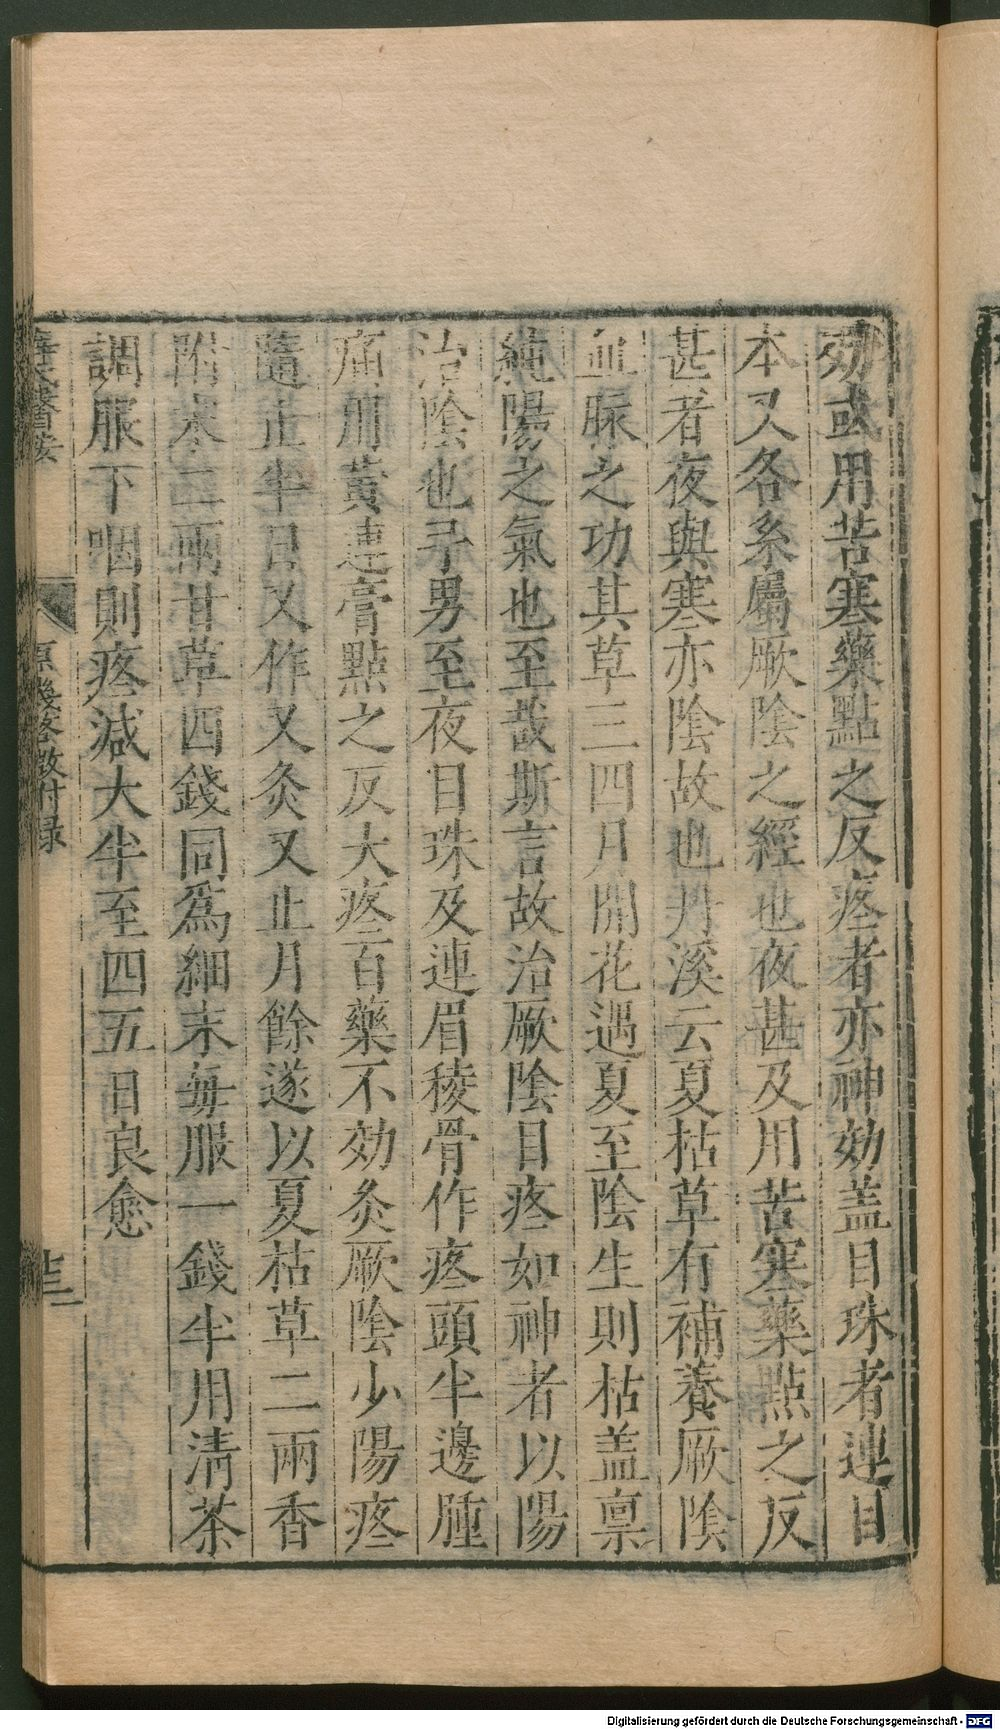 効或用苦寒藥點之反疼者亦神効盖目珠者連目
本又各系屬厥陰之經也夜甚及用苦寒藥點之反
甚者夜與寒亦陰故也丹溪云夏枯草有補養厥陰
血脉之功其草三四月開花遇夏至陰生則枯盖禀
純陽之氣也至哉斯言故治厥陰目疼如神者以陽
治陰也予男至夜目珠及連眉稜骨作疼頭半邊腫
痛用黃連膏點之反大疼百藥不効灸厥陰少陽疼
隨止半日又作又灸又止月餘遂以夏枯草二兩香
附末二兩甘草四錢同爲細末每服一錢半用清茶
調服下咽則疼減大半至四五日良愈
薛氏醫按
原機啓微付录
Digitalisierung gefördert durch die Deutsche Forschungsgemeinschaft - DFG